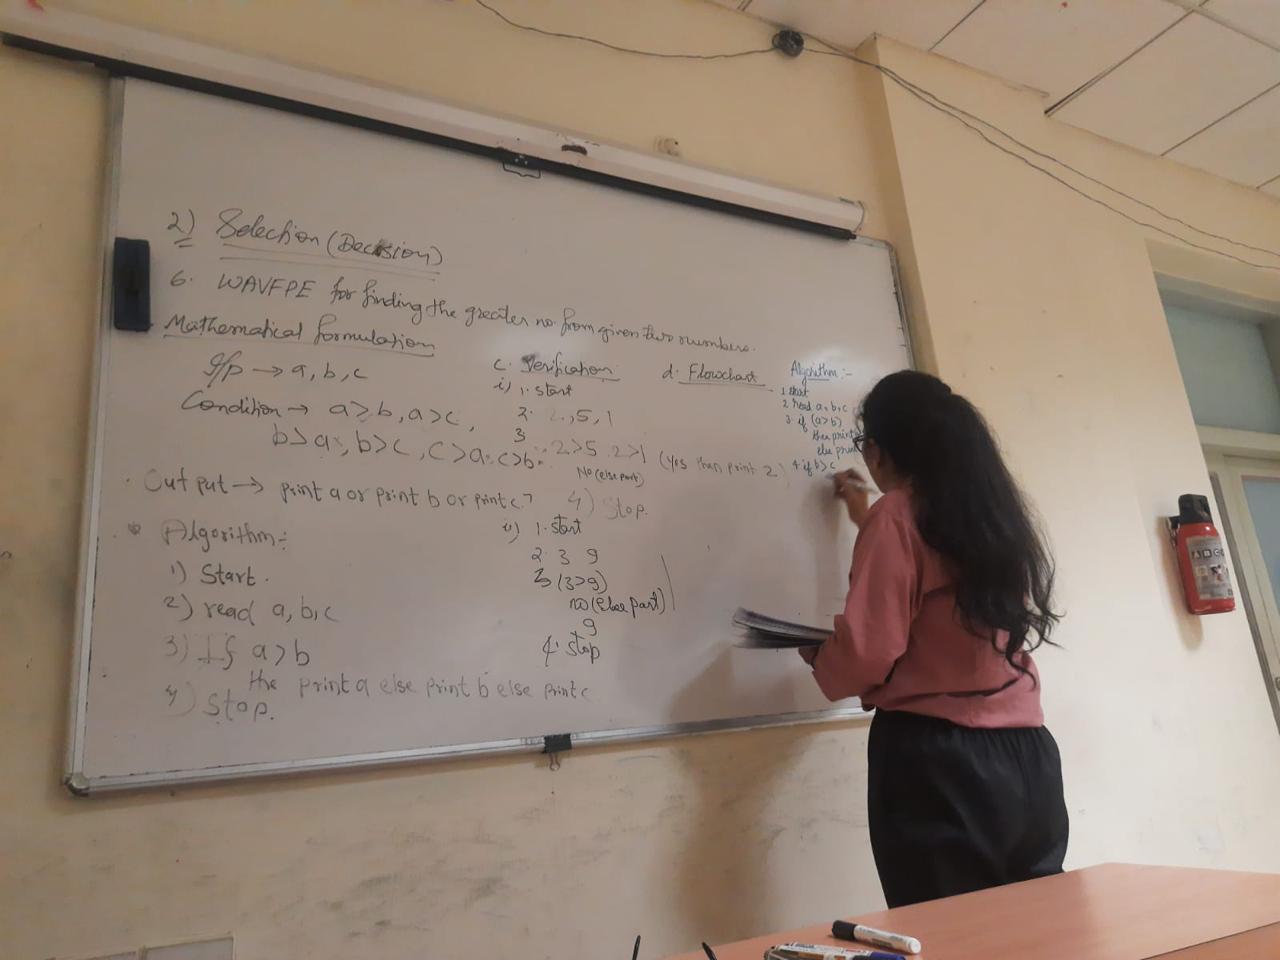 2) Selection (Decision)
6. WAVFPE for finding the greater no. from given two numbers.
Mathematical formulation
I/p → a, b, c
Condition → a>b, a>c,
b>a, b>c, c>a, c>b
Output → print a or print b or print c
Algorithm:-
1) Start.
2) read a, b, c
3) If a>b
the print a else print b else print c
4) Stop.
c. Verification
i) 1. start
2. 2, 5, 1
3
2>5 2>1 (Yes then print 2)
No (else part)
4) Stop.
ii) 1. start
2. 3 9
3 (3>9)
no (else part)
9
4. stop
d. Flowchart
Algorithm:-
1 start
2 read a, b, c
3. if (a>b)
then print
else print
4. if b>c